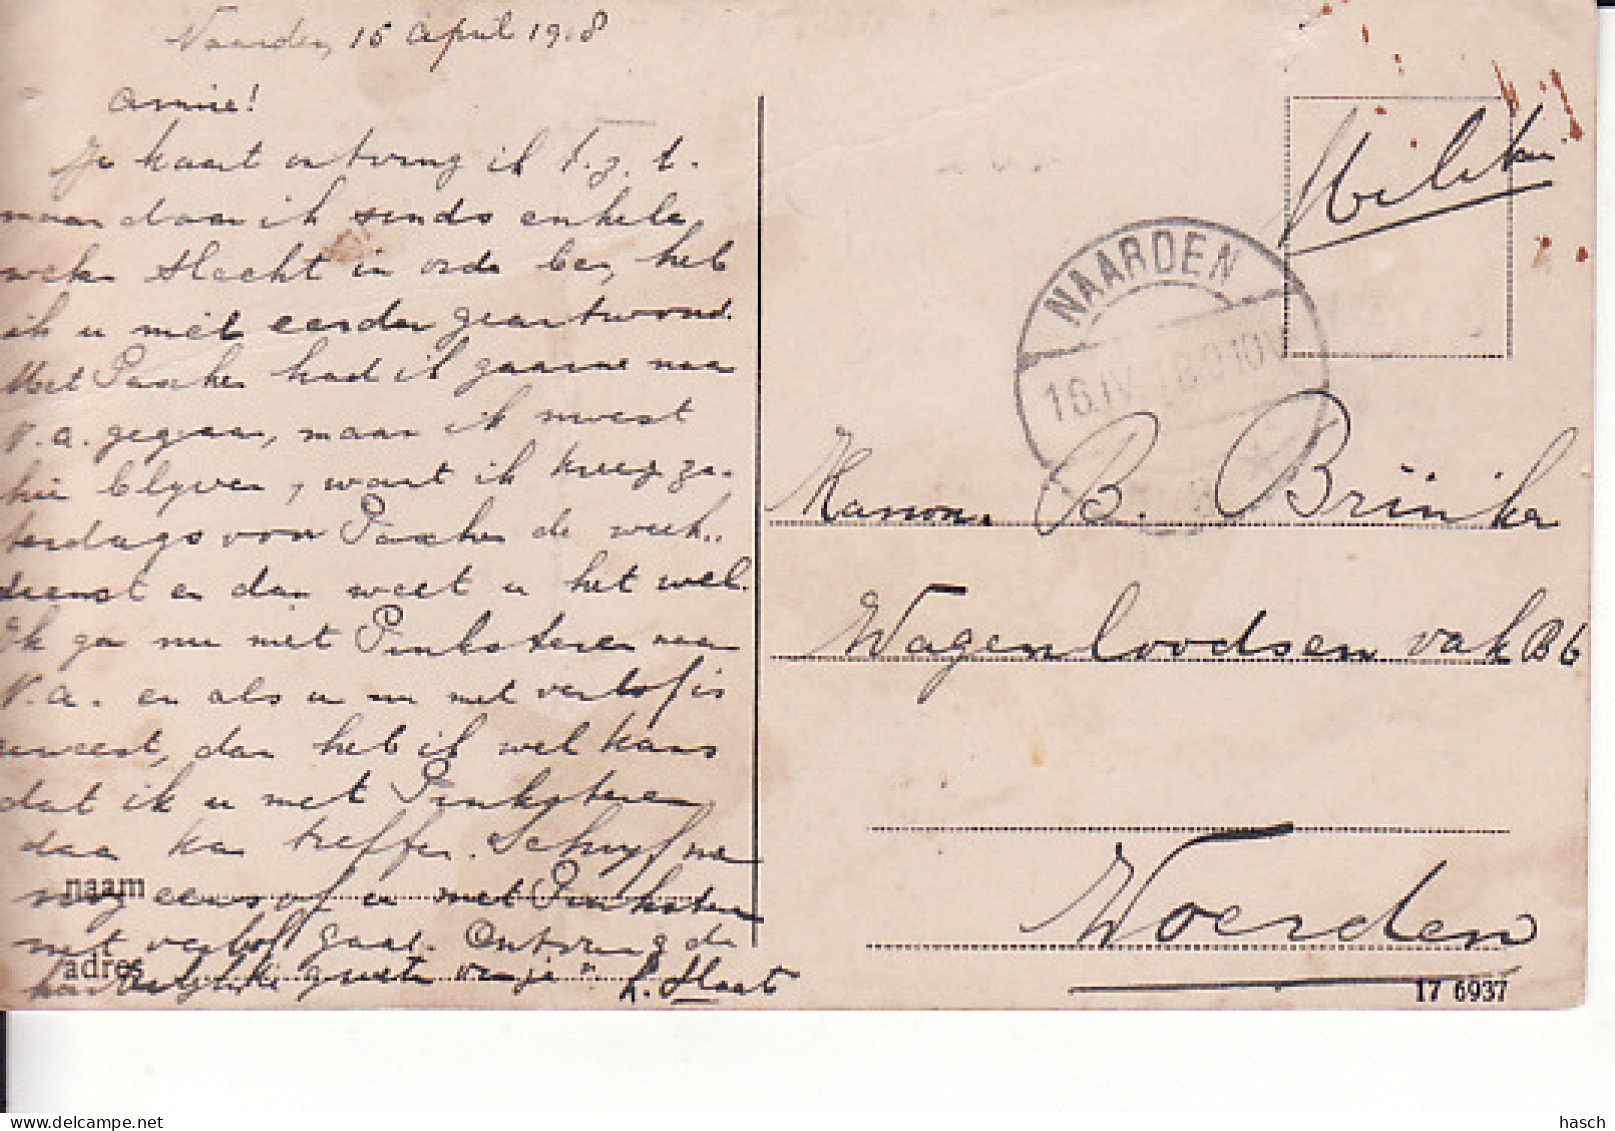 Naarden, 15 April 1918
Amice!
Je kaart ontving ik t.z.t.
maar daar ik sinds enkele
weken slecht in orde ben, heb
ik u niet eerder geantwoord.
Met Paschen had ik gaarne naar
V.a. gegaan, maar ik moest
hier blijven, want ik kreeg za-
terdags voor Paschen de week-
dienst en dan weet u het wel.
Ik ga nu met Pinksteren naar
V.a. en als u nu met verlof is
geweest, dan heb ik wel kans
dat ik u met Pinksteren
daar kan treffen. Schrijf me
nog eens of u met Pinksteren
naam
met verlof gaat. Ontvang de
adres
hartelijke groeten van je
Militair
NAARDEN
16.IV.18.9-10V
Kanon. B. Brinker
Wagenloodsen vak B6
Woerden
17 6937
Uploaded to delcampe.net
hasch